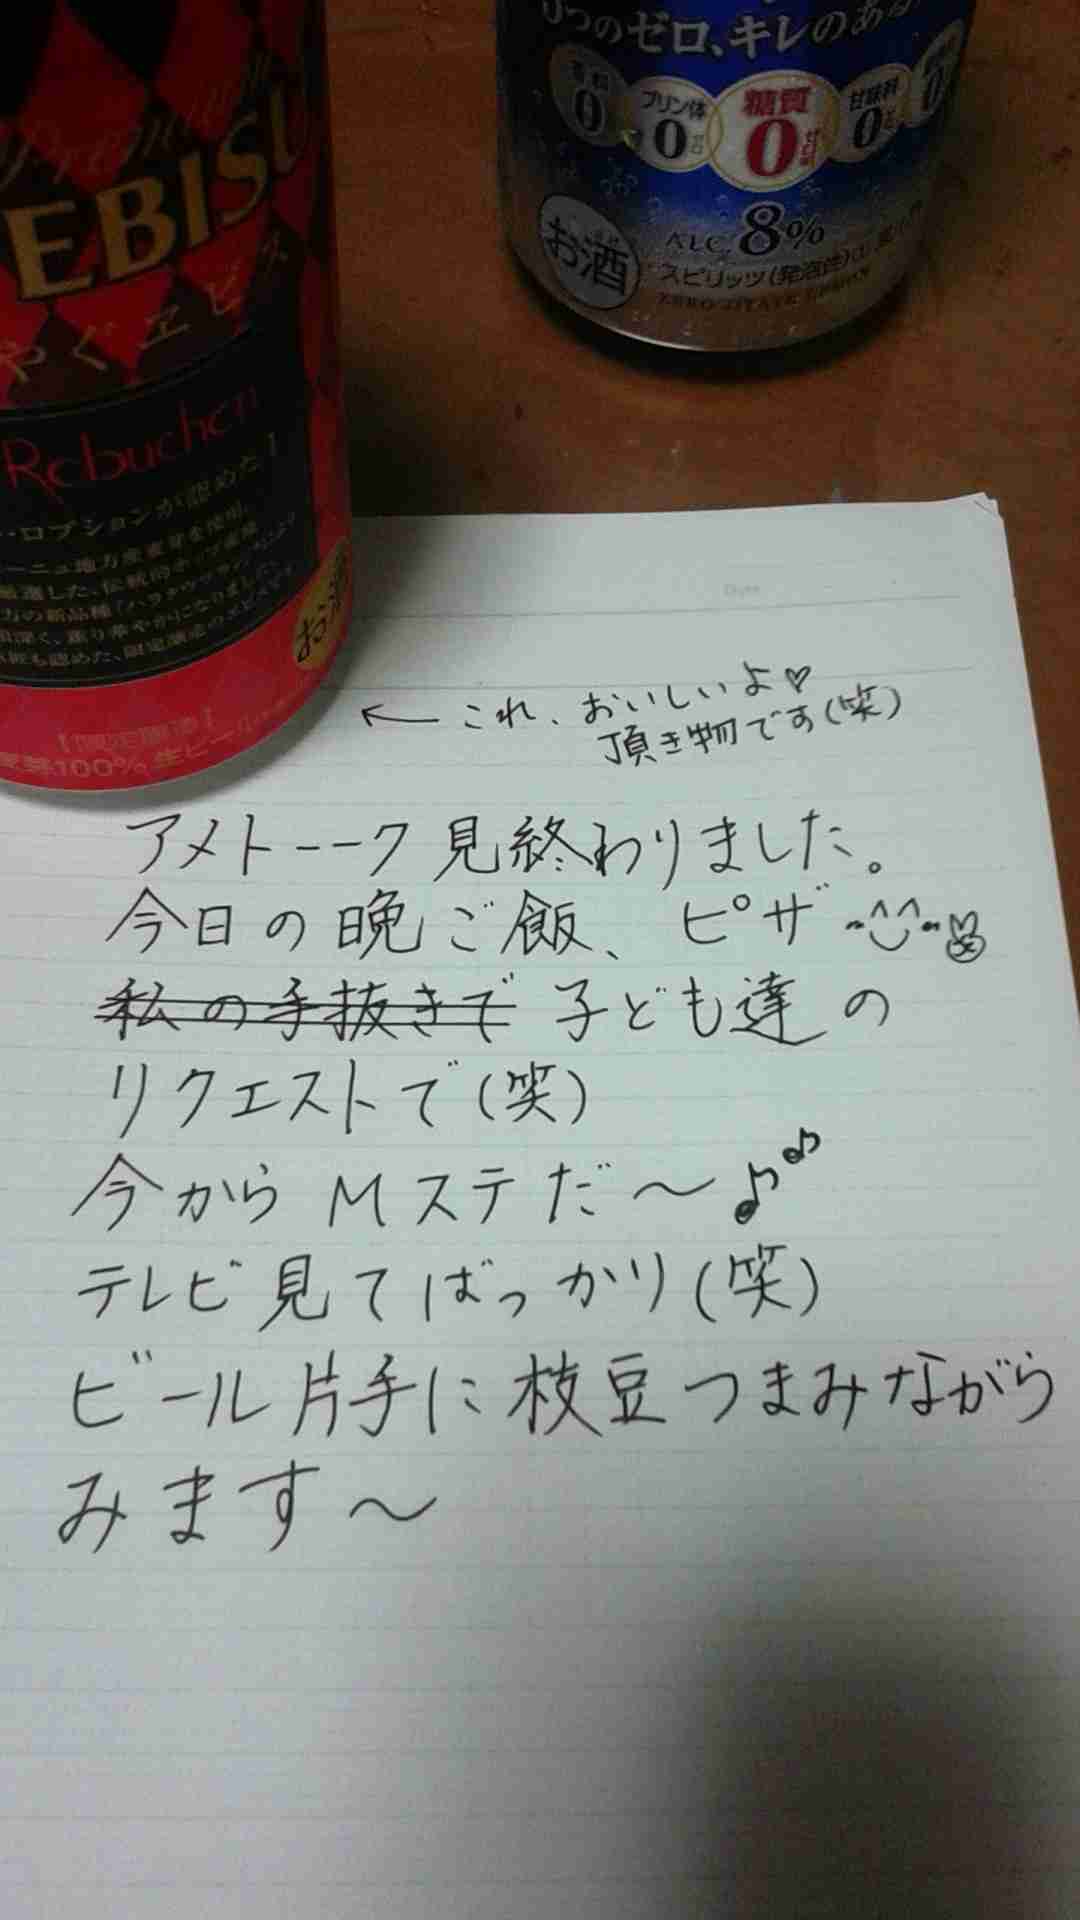 Premium
EBISU
やぐヱビス
Robuchon
・ロブション が認めた!
お酒
【限定醸造】
麦芽100% 生ビール
つのゼロ、キレのある
プリン体 0 糖質 0 甘味料 0
お酒
ALC. 8%
スピリッツ(発泡性)
← これ、おいしいよ♡
頂き物です(笑)
アメトーーク見終わりました。
今日の晩ご飯、ピザ
私の手抜きで 子ども達の
リクエストで(笑)
今からMステだ〜♪♪
テレビ見てばっかり(笑)
ビール片手に枝豆つまみながら
みます〜